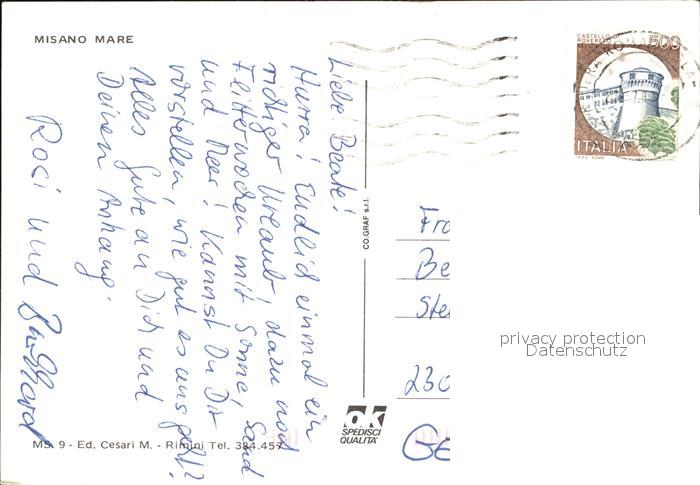 MISANO MARE
Liebe Beate!
Hurra! Endlich einmal ein
richtiger Urlaub, dazu noch
Flitterwochen mit Sonne, Sand
und Meer! Kannst Du Dir
vorstellen, wie gut es uns geht?
Alles Gute an Dich und
Deinen Anhang.
Rosi und
CO.GRAF s.r.l.
CASTELLO DI
ROVERETO
500
ITALIA
Fra
Be
Ste
230
privacy protection
Datenschutz
OK
SPEDISCI
QUALITA'
MS. 9 - Ed. Cesari M. - Rimini Tel. 384.457